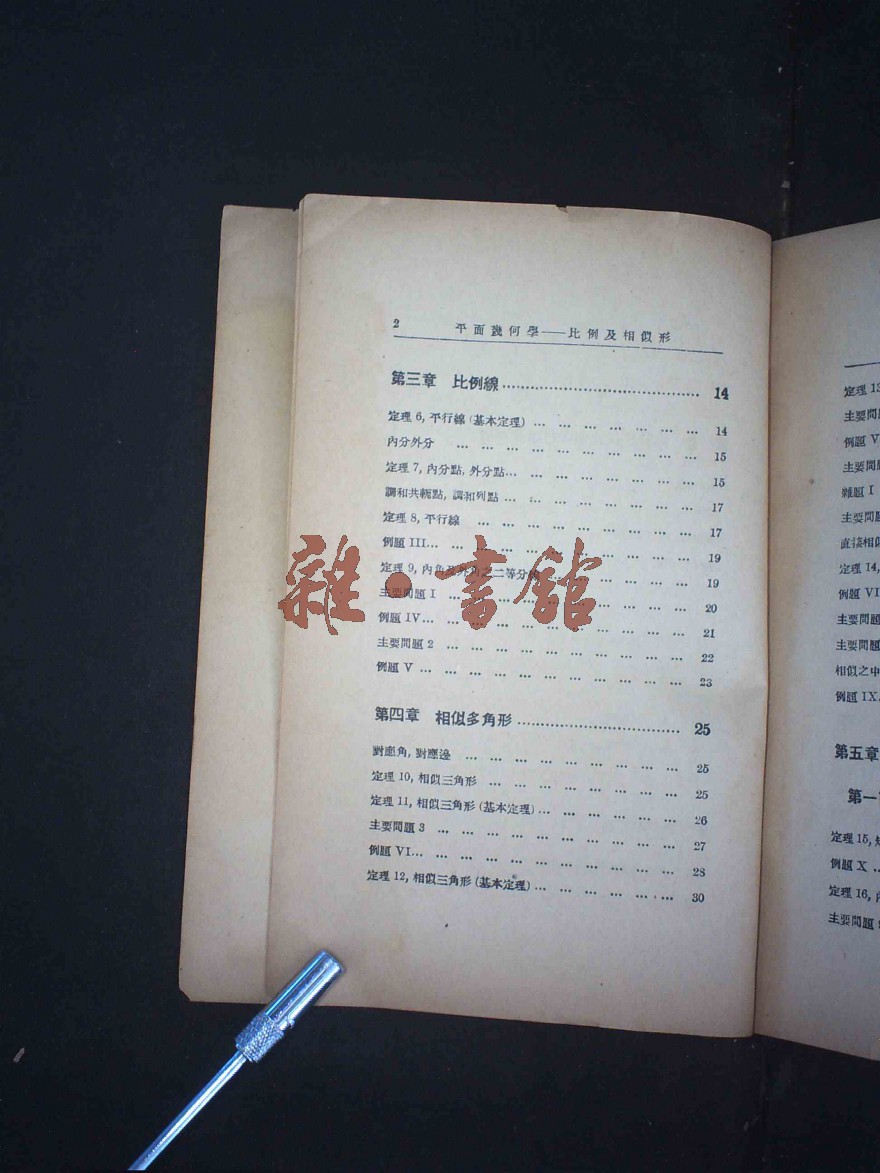 2 平面幾何學——比例及相似形
第三章 比例線 14
定理 6, 平行線 (基本定理) 14
內分外分 15
定理 7, 內分點, 外分點 15
調和共軛點, 調和列點 17
定理 8, 平行線 17
例題 III 19
定理 9, 內角及外角之二等分線 19
主要問題 I 20
例題 IV 21
主要問題 2 22
例題 V 23
第四章 相似多角形 25
對應角, 對應邊 25
定理 10, 相似三角形 25
定理 11, 相似三角形 (基本定理) 26
主要問題 3 27
例題 VI 28
定理 12, 相似三角形 (基本定理) 30
雜·書館
定理 13
主要問
例題 V
主要問
雜題 I
主要問
直接相似
定理 14,
例題 VI
主要問題
主要問題
相似之中
例題 IX
第五章
第一
定理 15,
例題 X
定理 16,
主要問題